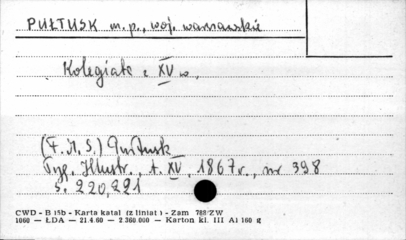 PUŁTUSK m. p., woj. warszawskie
Kolegiata z XV w.
(F. M. S.) Pułtusk
Tyg. Illustr., t. XV, 1867 r., nr 398
s. 220,221
CWD - B 15b - Karta katal (z liniat) - Zam 788/ZW
1060 — ŁDA — 21.4.60 — 2 360 000 — Karton kl. III A1 160 g